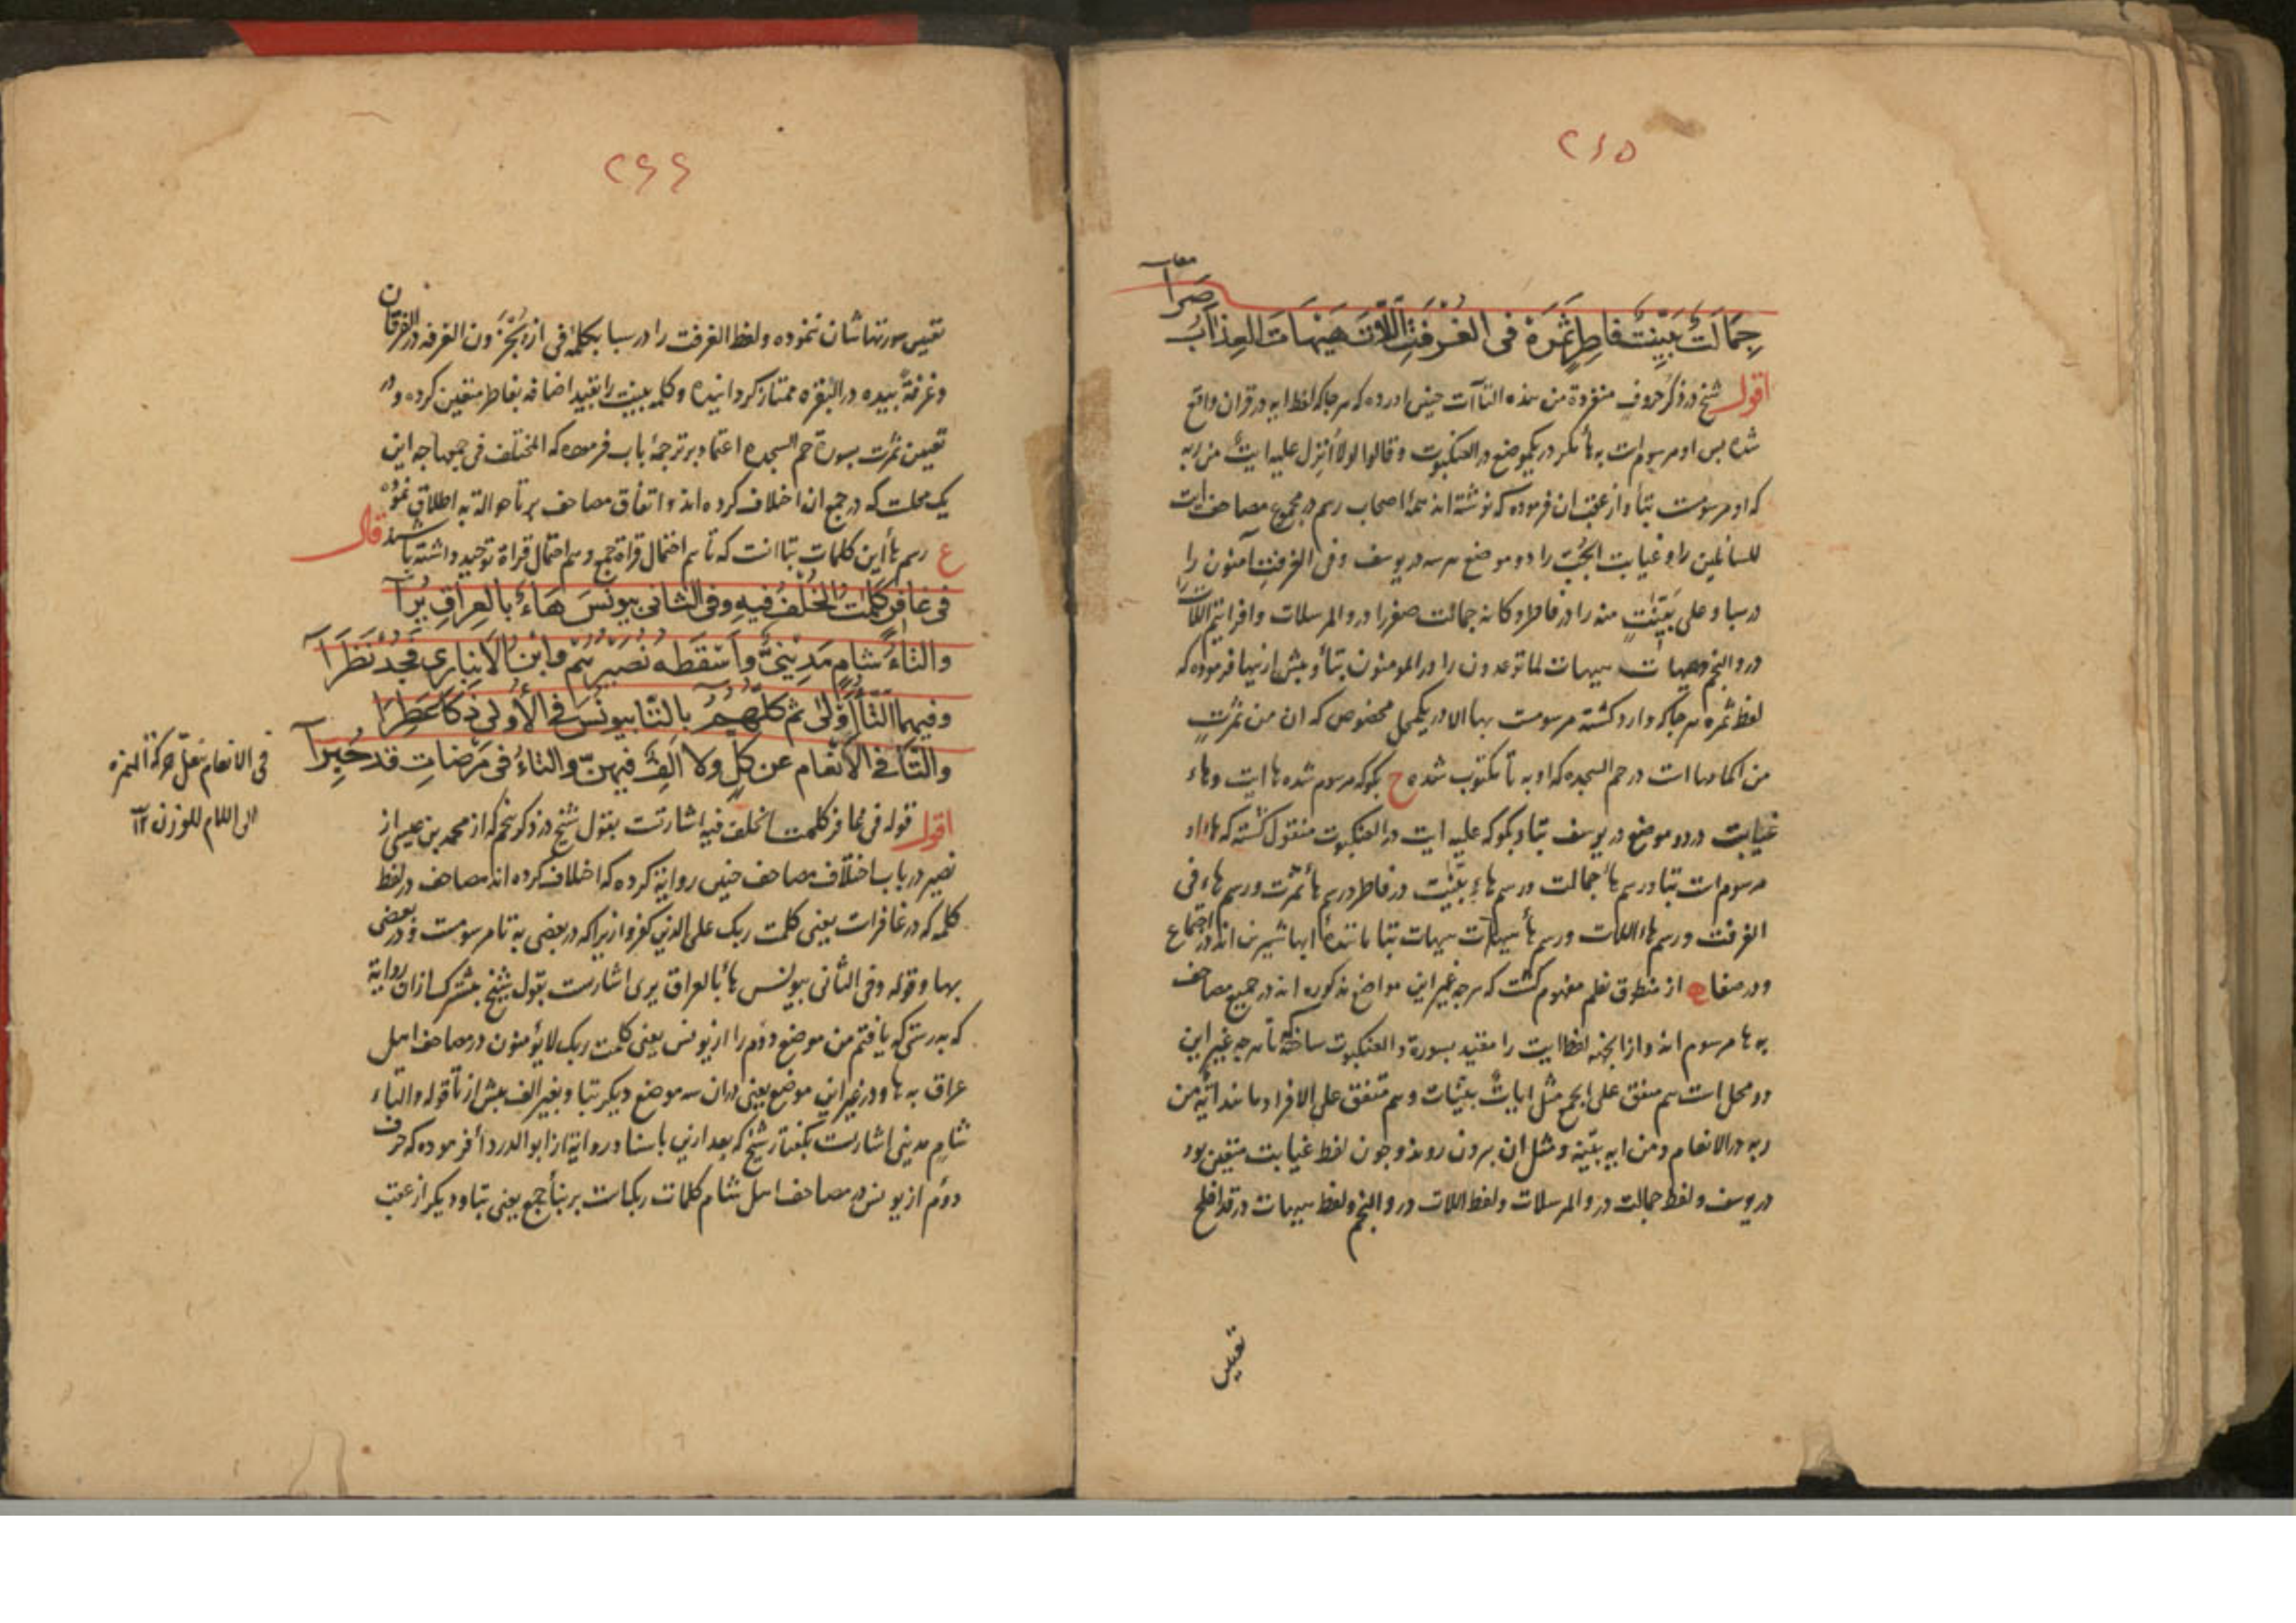 ٢٦٥
صِرَا
جِمَالَتٌ بَيِّنَتٌ فاطِرٍ ثَمَرَةْ فى الغُرْفَتِ اللاتَ هَيْهَاتَ العِذَابَ
اقول شیخ در ذکر حروف منفردة من هذه التاآت چنین اورده که هر جا که لفظ ایه در قران واقع
شده پس او مرسوم است به هأ مکر در یکموضع در العنکبوت و قالوا لولا انزل علیه ایت من ربه
که او مرسومست بتا و از عقب ان فرموده که نوشته اند همهٔ اصحاب رسم در مجموع مصاحف ایت
للسائلین را و غیابت الجُبّ را دو موضع هر سه در یوسف و فى الغرفت آمنون را
در سبا و على بیّنت منه را در فاطر و کانه جمالت صفر را در و المرسلات و افرایتم اللات را
در و النجم و هیهات هیهات لما توعدون را در المومنون بتا و پیش از اینها فرموده که
لفظ ثمره هر جا که وارد کشته مرسومست بها الا در یکمحل مخصوص که ان من ثمرت
من اکمامها است در حم السجده که او به تا مکتوب شده ح بکو که مرسوم شده ها ایت و هاء
غیابت در دو موضع در یوسف بتا و بکو که علیه ایت در العنکبوت منقول کشته که ها او
مرسوم است بتا و رسم هأ جمالت و رسم هاء بیّنت در فاطر و رسم هأ ثمرت و رسم هاء فى
الغرفت و رسم هاء اللات و رسم هأ هیهات هیهات بتا
از منطوق نظم مفهوم کشت که هر چه غیر این مواضع مذکوره اند در جمیع مصاحف
به ها مرسوم اند و از انجهة لفظ ایت را مقید بسورة و العنکبوت ساخته تا هر چه غیر این
دو محل است هم متفق على الجمع مثل ایات بیّنات و هم متفق على الافراد مانند ایة من
ربه در الانعام و من ایه بیّنة و مثل ان بیرون روند و چون لفظ غیابت متعین بود
در یوسف و لفظ جمالت در و المرسلات و لفظ اللات در و النجم و لفظ هیهات در قد افلح
تعیین
٢٦٦
تعیین سورتهاشان ننموده و لفظ الغرفت را در سبا بکلمهٔ فى از یجزون الغرفه در الفرقان
و غرفةً بیده در البقره ممتاز کردانیده و کلمه بینت را بقید اضافه بفاطر متعین کرده و در
تعیین ثمرت بسورة حم السجده اعتماد بر ترجمهٔ باب فرموده که المختلف فى جمعها چه این
یک محلست که در جمع ان اختلاف کرده اند و اتفاق مصاحف بر تا حوالة به اطلاق نموده
ع رسم هأ این کلمات بتا انت که تا هم احتمال قراة جمع و هم احتمال قراة توحید داشته باشد قال
فى غافرٍ کَلِمَتُ الخُلْفُ فيهِ وفى الثانى بيونُسَ هَاءٌ بالعِراقِ يُرَا
والتاءُ شامٍ مَدِينىٌّ وَاَسْقَطَه نُصَيْرُهُمْ وابْنُ الاَنبارى فَجُدْ نَظَرَا
وفيهما التّا اَوْلىٰ ثم كُلّهمُ بالتّا بيونُسَ فى الأُولى ذَكَا عَطِرَا
والتّا فى الاَنْعَام عن كلٍّ ولا اَلِفٌ فيهنّ والتاءُ فى مَرْضَاتِ قد خُبِرَا
اقول قوله فى غافر کلمت الخلف فیه اشارتست بقول شیخ در ذکر نخیم که از محمد بن عیسى از
نصیر در باب اختلاف مصاحف چنین روایة کرده که اختلاف کرده اند مصاحف در لفظ
کلمه که در غافرات یعنى کلمت ربک على الذین کفروا زیرا که در بعضى به تا مرسومست و در بعضى
بها و قوله و فى الثانى بیونس هأ بالعراق یرى اشارتست بقول شیخ
که بدرستى که یافتم من موضع دوم را از یونس یعنى کلمت ربک لا یؤمنون در مصاحف اهل
عراق به ها و در غیر این موضع یعنى دران سه موضع دیکر بتا و بغیر الف پیش از تا قوله و التاء
شام مدینى اشارتست بکفتار شیخ که بعد ازین باسناد روایة از ابو الدردأ فرموده که حرف
دوّم از یونس در مصاحف اهل شام کلمات ربک است بر بنأ جمع یعنى بتا و دیکر از عقب
فى الانعام بنقل حرکة الهمزه
الى اللام للوزن ١٢